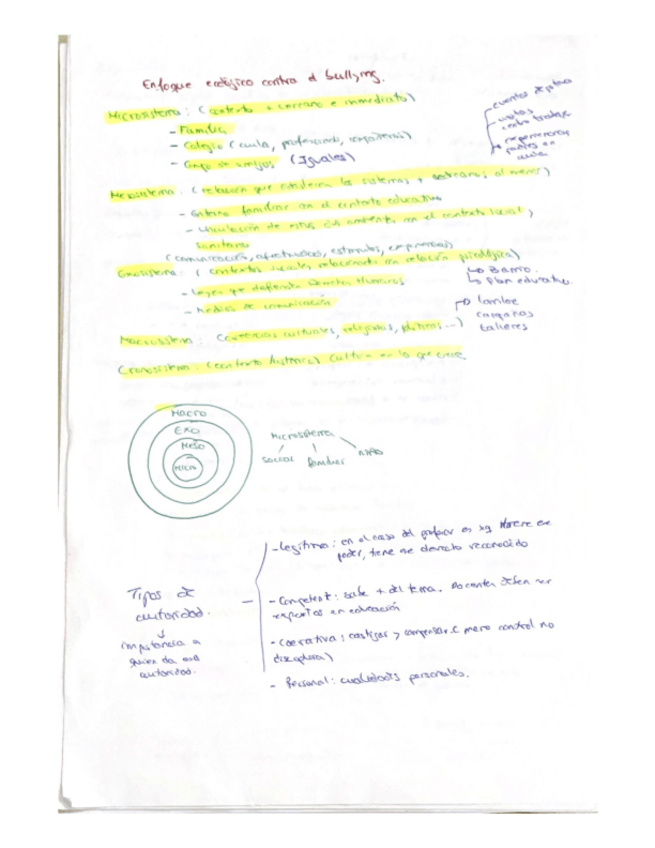 Enfoque ecológico contra el bullying.
Microsistema: (contexto + cercano e inmediato)
- Familia
- Colegio (aula, profesorado, compañeros)
- Grupo de amigos (Iguales)
eventos deportivos
visitas
centro trabajo
experiencias
padres en
aula
Mesosistema: (relación que establecen los sistemas + cercanos al menor)
- Entorno familiar con el contexto educativo
- Vinculación de estos dos ambientes con el contexto social,
sanitario
(comunicación, afectividad, estímulos, experiencias)
Exosistema: (contextos sociales relacionados con relación psicológica)
→ Barrio.
→ Plan educativo.
- Leyes que defienden Derechos Humanos
- Medios de comunicación
→ Lomloe
campañas
talleres
Macrosistema: (creencias culturales, religiosas, políticas...)
Cronosistema: (contexto histórico) Cultura en la que crece
MACRO
EXO
MESO
MICRO
Microsistema
social familiar
Tipos de
autoridad.
↓
importancia a
quien da esa
autoridad.
- Legítima: en el caso del profesor es xq merece ese
poder, tiene ese derecho reconocido
- Competente: sabe + del tema. Docentes deben ser
expertos en educación
- Coercitiva: castigar y compensar. (mero control no
disciplina)
- Personal: cualidades personales.